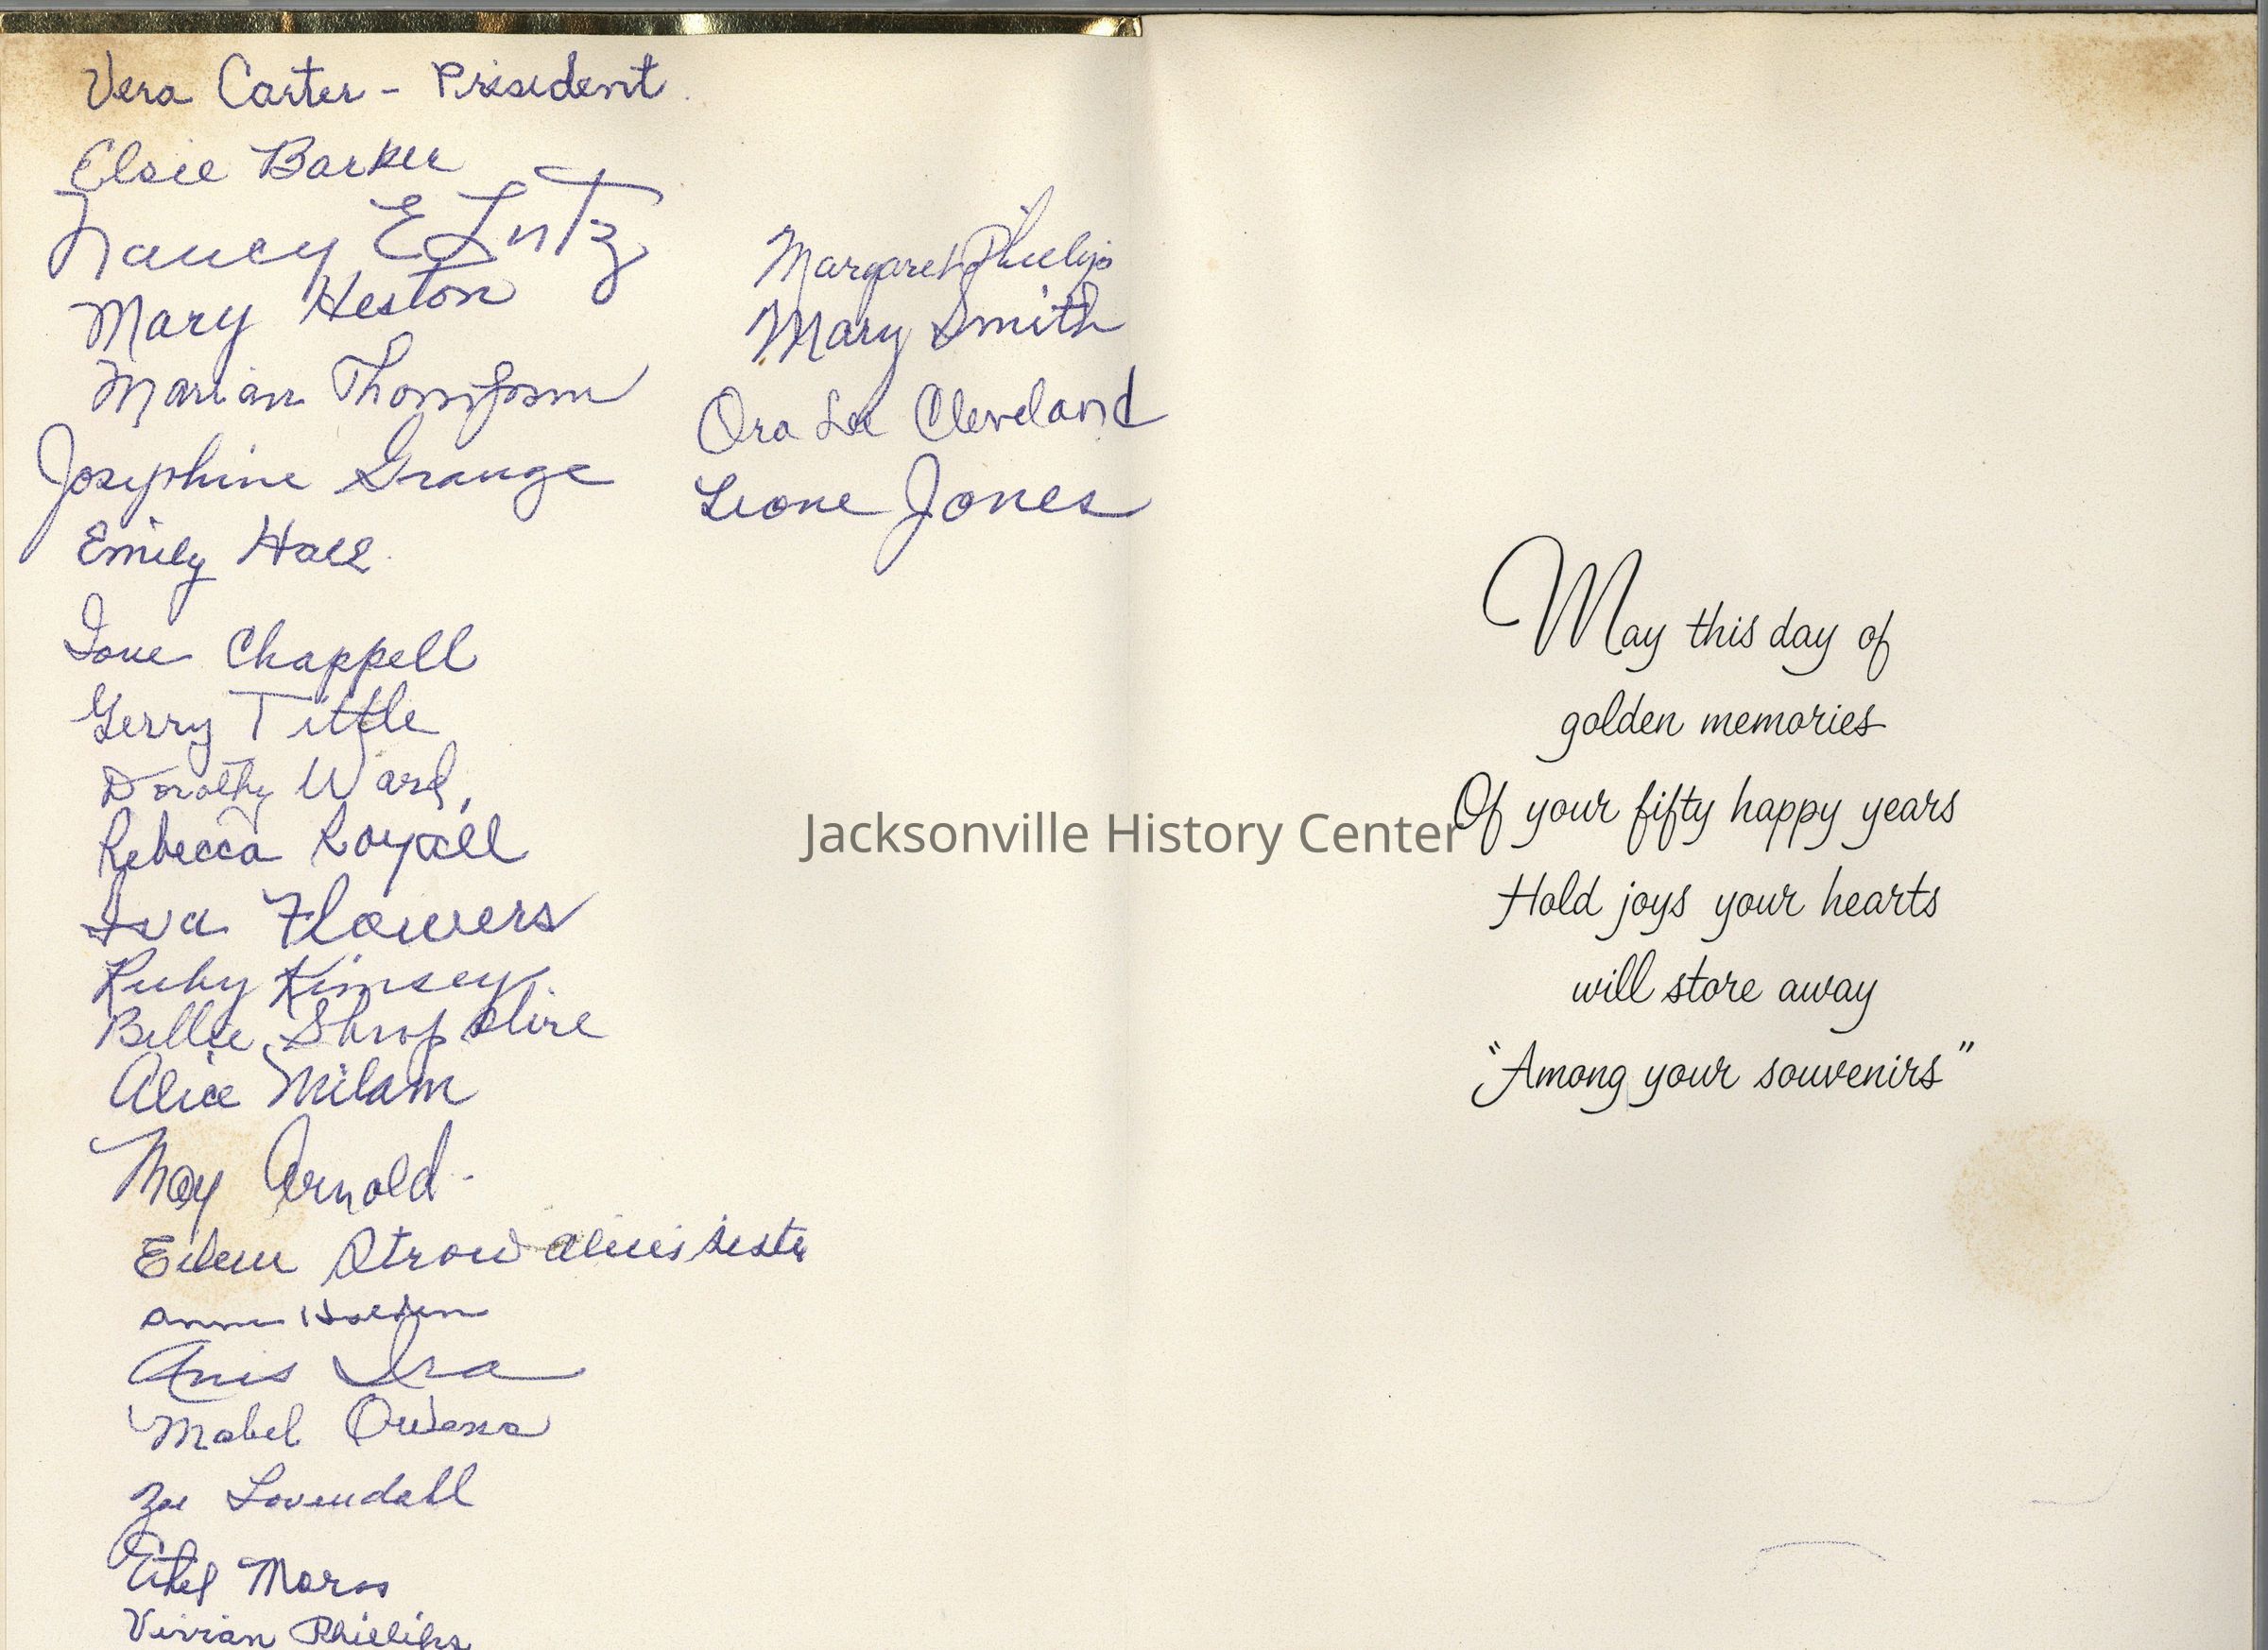 Vera Carter - President.
Elsie Barker
Nancy E Lutz
Mary Heston
Marian Thompson
Josephine Grange
Emily Hall
Ione Chappell
Gerry Tittle
Dorothy Ward,
Rebecca Royall
Iva Flowers
Ruby Kimsey
Billie Shropshire
Alice Milam
May Arnold
Eileen Strow alices sister
Anne Holden
Anis Ira
Mabel Owens
Zoe Lovendahl
Ethel Moros
Vivian Phillips
Margaret Phillips
Mary Smith
Ora Lee Cleveland
Leone Jones
Jacksonville History Center
May this day of
golden memories
Of your fifty happy years
Hold joys your hearts
will store away
“Among your souvenirs”